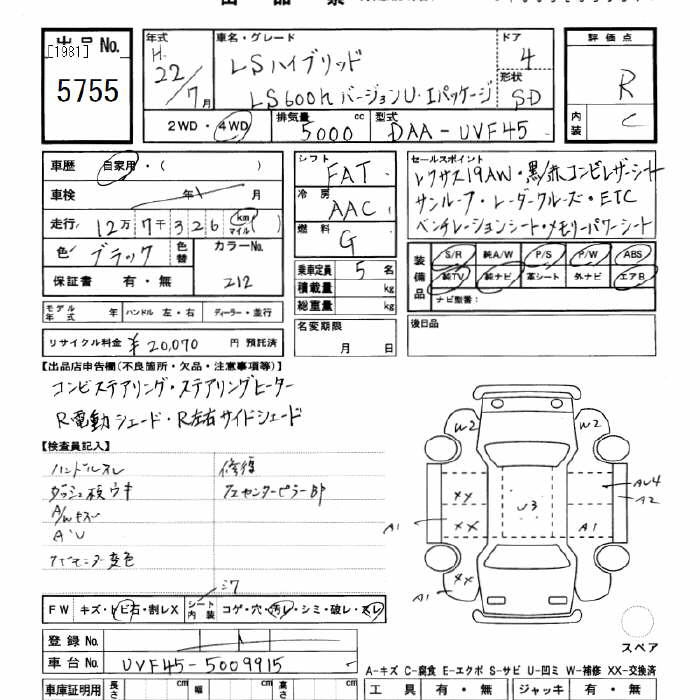 出品票
出品No.
[1981]
5755
年式 H.22/7月
車名・グレード
LSハイブリッド
LS600h バージョンU・Iパッケージ
ドア 4
形状 SD
2WD・4WD
排気量 5000 cc
型式 DAA-UVF45
評価点 R
内装 C
車歴 自家用・( )
車検 年 月
走行 12万7千326 km マイル ( )
色 ブラック
色替
カラーNo. 212
保証書 有・無
モデル年式 年
ハンドル 左・右
ディーラー・並行
リサイクル料金 ¥20,070 円 預託済
シフト FAT
冷房 AAC
燃料 G
乗車定員 5 名
積載量 kg
総重量 kg
名変期限
月 日
セールスポイント
レクサス19AW・黒/赤コンビレザーシート
サンルーフ・レーダークルーズ・ETC
ベンチレーションシート・メモリーパワーシート
装備品
S/R 純A/W P/S P/W ABS
純TV 純ナビ 革シート 外ナビ エアB
ナビ型番:
後日品
【出品店申告欄(不良箇所・欠品・注意事項等)】
コンビステアリング・ステアリングヒーター
R電動シェード・R左右サイドシェード
【検査員記入】
ハンドルスレ
ダッシュ板ウキ
A/Wキズ
A・U
修復
センターピラーBP
W2 W2
XX
XX
XX
U3
A1
A1
A1
AU4
A2
スペア
FW キズ・トビ石・割レX
シート内装 コゲ・穴・汚レ・シミ・破レ・スレ
登録No.
車台No. UVF45-5009915
A-キズ C-腐食 E-エクボ S-サビ U-凹ミ W-補修 XX-交換済
車庫証明用 長さ cm 幅 cm 高さ cm
工具 有・無 ジャッキ 有・無